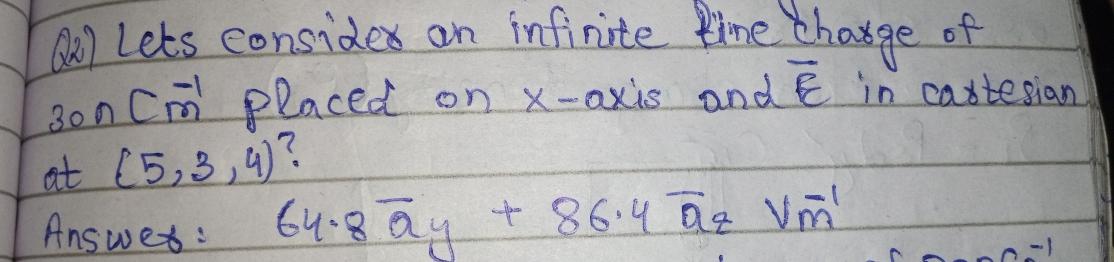 Q2) Lets consider an infinite line charge of
30n C m⁻¹ placed on x-axis and E̅ in cartesian
at (5,3,4)?
Answer: 64.8 a̅y + 86.4 a̅z V m⁻¹